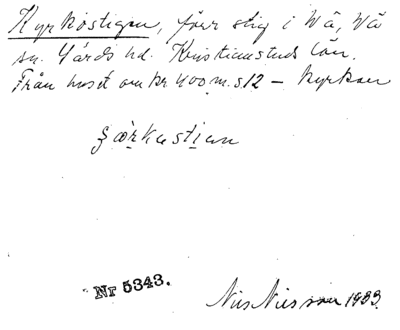 Kyrkostigen, förr stig i Vä, Vä
sn. Gärds hd. Kristianstads län.
Från huset om kr 400 m. s12 – kyrkan
ʒœrkustian
Nr 5343.
Nils Nilsson 1933.